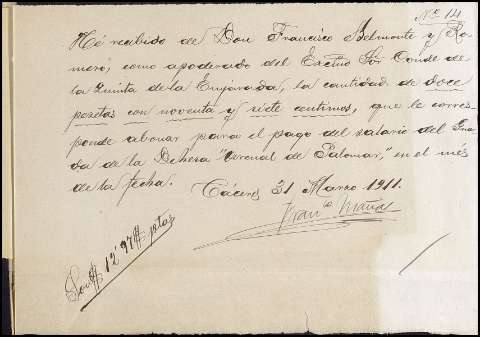 Nº 14
Hé recibido de Don Francisco Belmonte y Ro-
meró, como apoderado del Exctmo Sor Conde de
la Quinta de la Enjarada, la cantidad de doce
pesetas con noventa y siete centimos, que le corres-
ponde abonar para el pago del salario del Gua-
da de la Dehesa "Arenal de Palomar," en el més
de la fecha. Cáceres 31 Marzo 1911.
Franco Mañas
Son # 12'97 # ptas